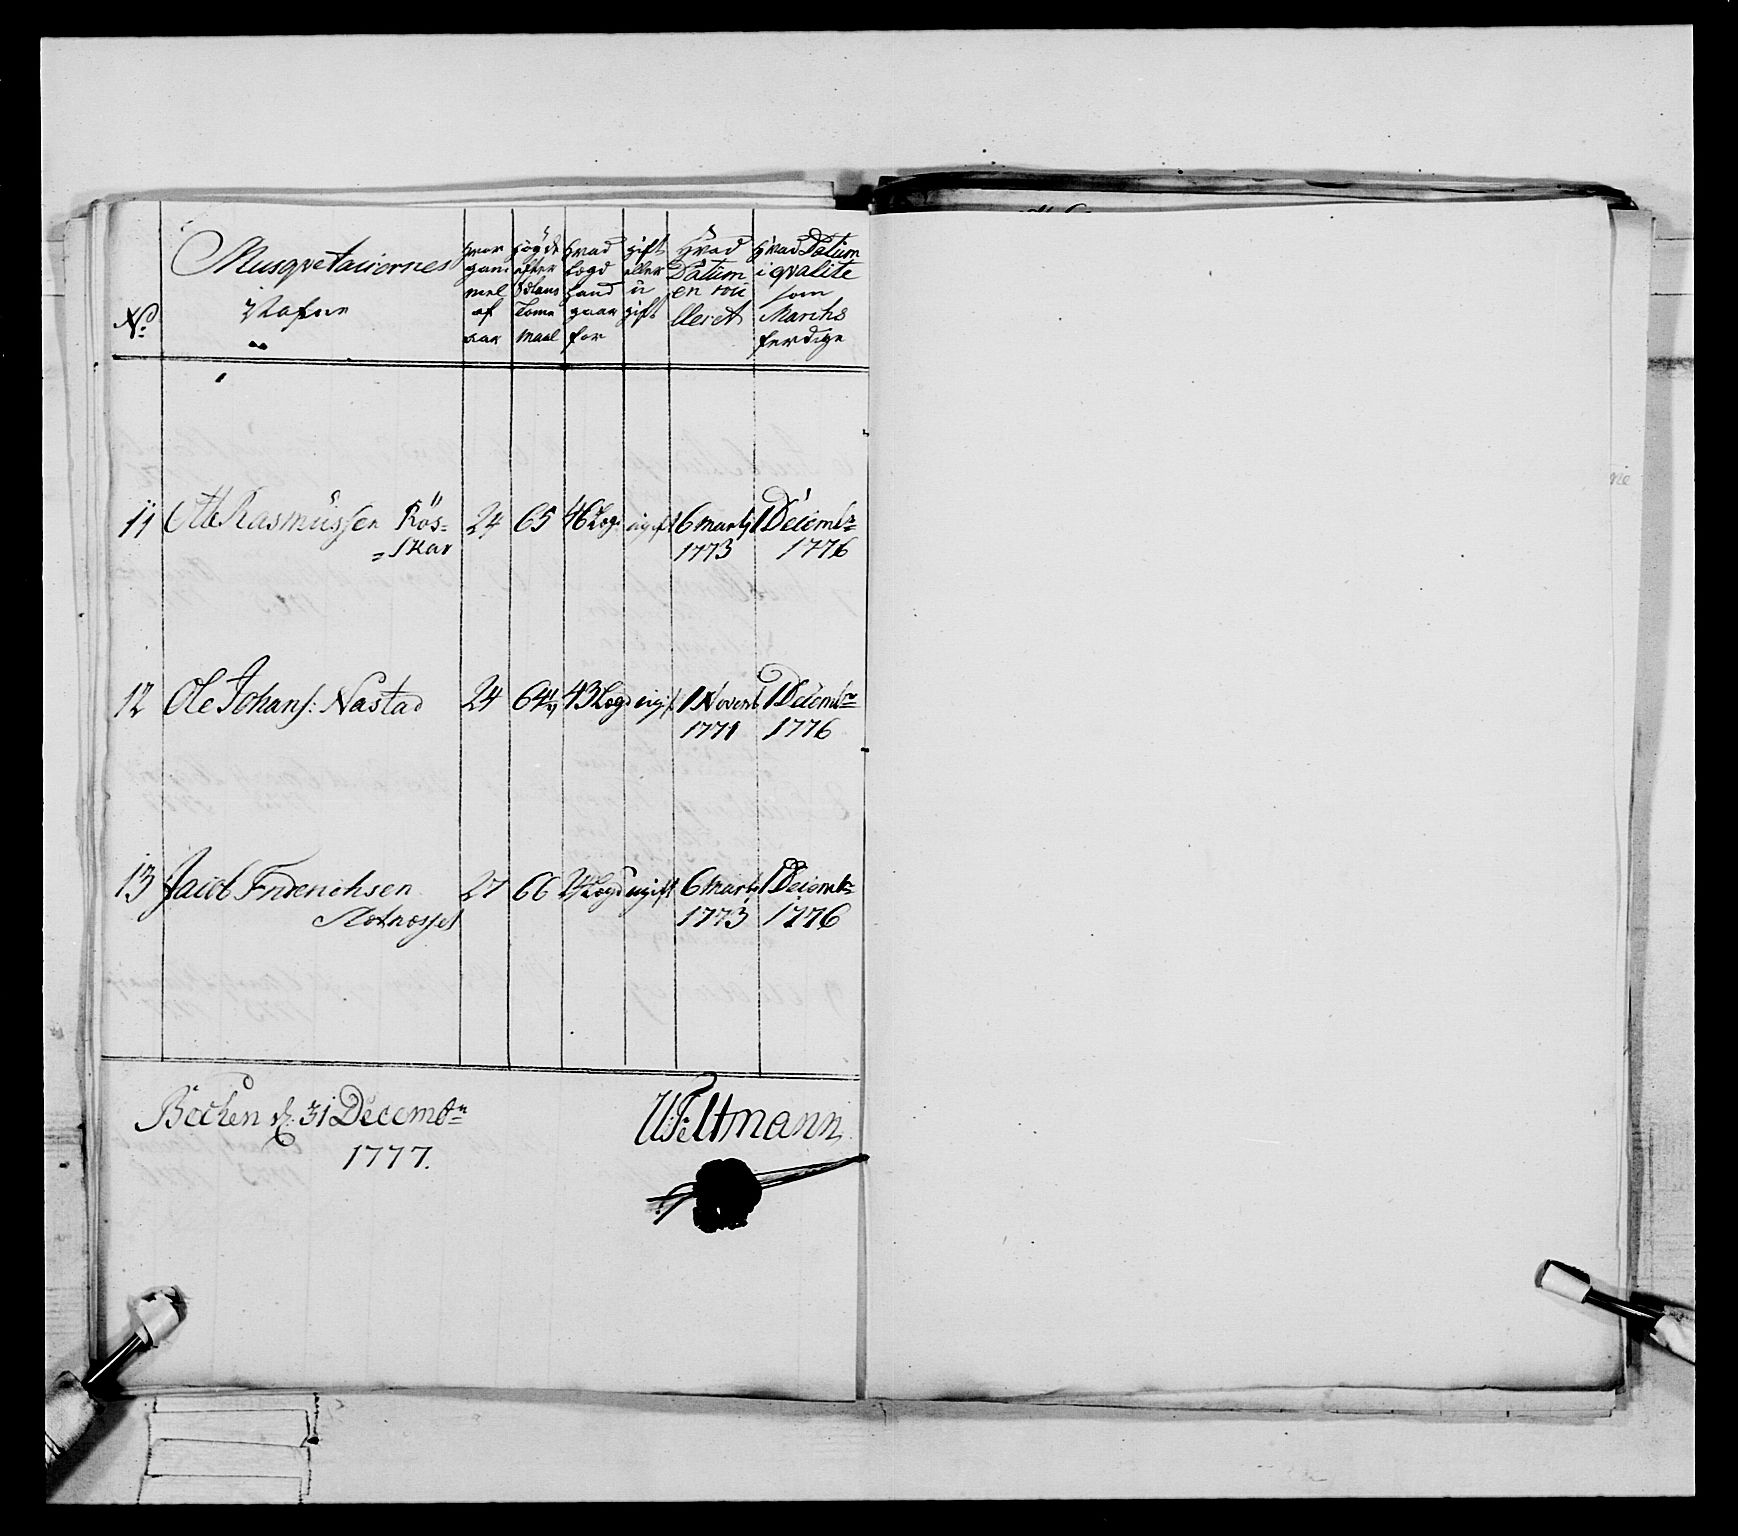 No
Musqvetairernes
Nafne
hvor gam mel af aar
høyde efter Tome maal
hvad Lægd hand gaar for
gift eller u gift
Hvad Datum en rou lleret
hvad Datum i qvalite som Marchs ferdige
11 Ole Rasmüssen Rös= 24 65 46 Lægd ugift 6 Martz 1 Decembr
=skar 1773 1776
12 Ole Johans: Nastad 24 64½ 43 Lægd ugift 1 Novemb 1 Decembr
1771 1776
13 Jacob Friderichsen 27 66 Lægd ugift 6 Martz 1 Decembr
1773 1776
d. 31 Decembr
1777.
Weltmann